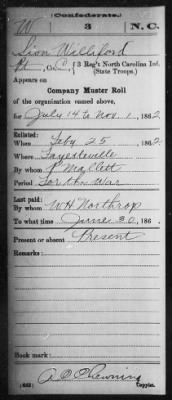 (Confederate.)
W 3 N.C.
Sion Williford
Pt, Co. C, 3 Reg't North Carolina Inf.
(State Troops.)
Appears on
Company Muster Roll
of the organization named above,
for July 14 to Nov. 1, 1862
Enlisted:
When Feby 25, 1862
Where Fayetteville
By whom P Mallett
Period For the War
Last paid:
By whom W H Northrop
To what time June 30, 186
Present or absent Present
Remarks:
Book mark:
(642) Copyist.